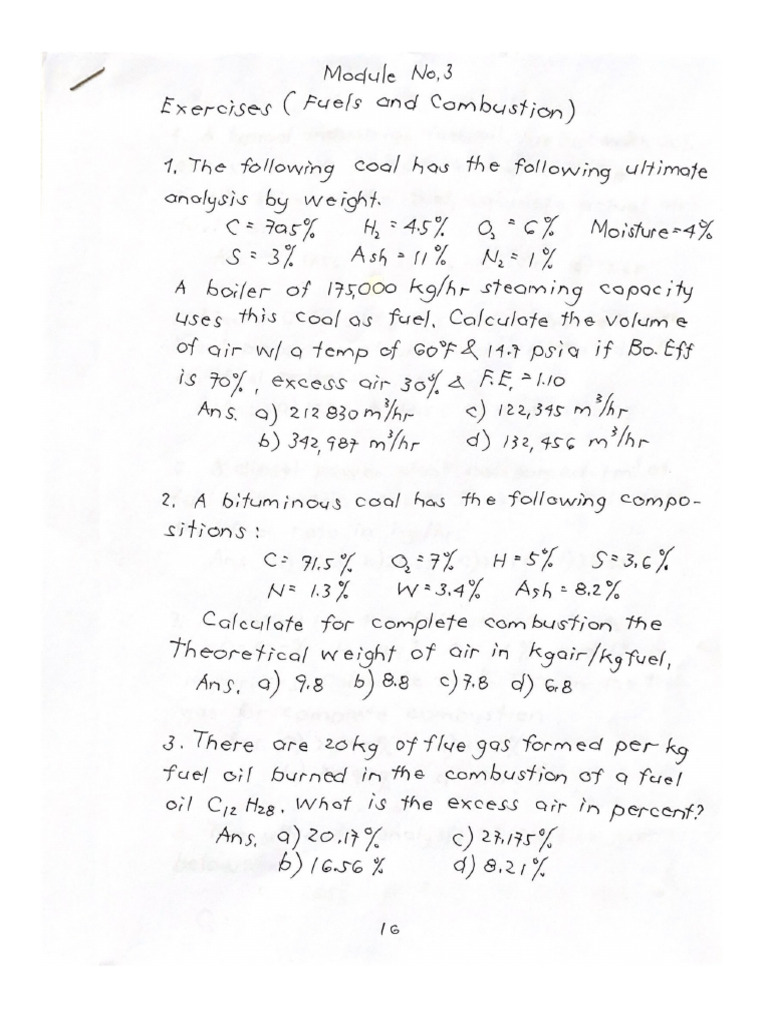 Module No,3
Exercises ( Fuels and Combustion)
1. The following coal has the following ultimate
analysis by weight.
C = 70.5% H₂ = 4.5% O₂ = 6% Moisture = 4%
S = 3% Ash = 11% N₂ = 1%
A boiler of 175,000 kg/hr steaming capacity
uses this coal as fuel. Calculate the volume
of air w/ a temp of 60°F & 14.7 psia if Bo. Eff
is 70%, excess air 30% & F.E, = 1.10
Ans. a) 212 830 m³/hr c) 122,345 m³/hr
b) 342,987 m³/hr d) 132,456 m³/hr
2. A bituminous coal has the following compo-
sitions :
C = 71.5% O₂ = 7% H = 5% S = 3.6%
N = 1.3% W = 3.4% Ash = 8.2%
Calculate for complete combustion the
theoretical weight of air in kgair/kgfuel,
Ans, a) 9.8 b) 8.8 c) 7.8 d) 6.8
3. There are 20kg of flue gas formed per kg
fuel oil burned in the combustion of a fuel
oil C₁₂ H₂₈. What is the excess air in percent?
Ans. a) 20.17% c) 27.175%
b) 16.56 % d) 8.21%
16